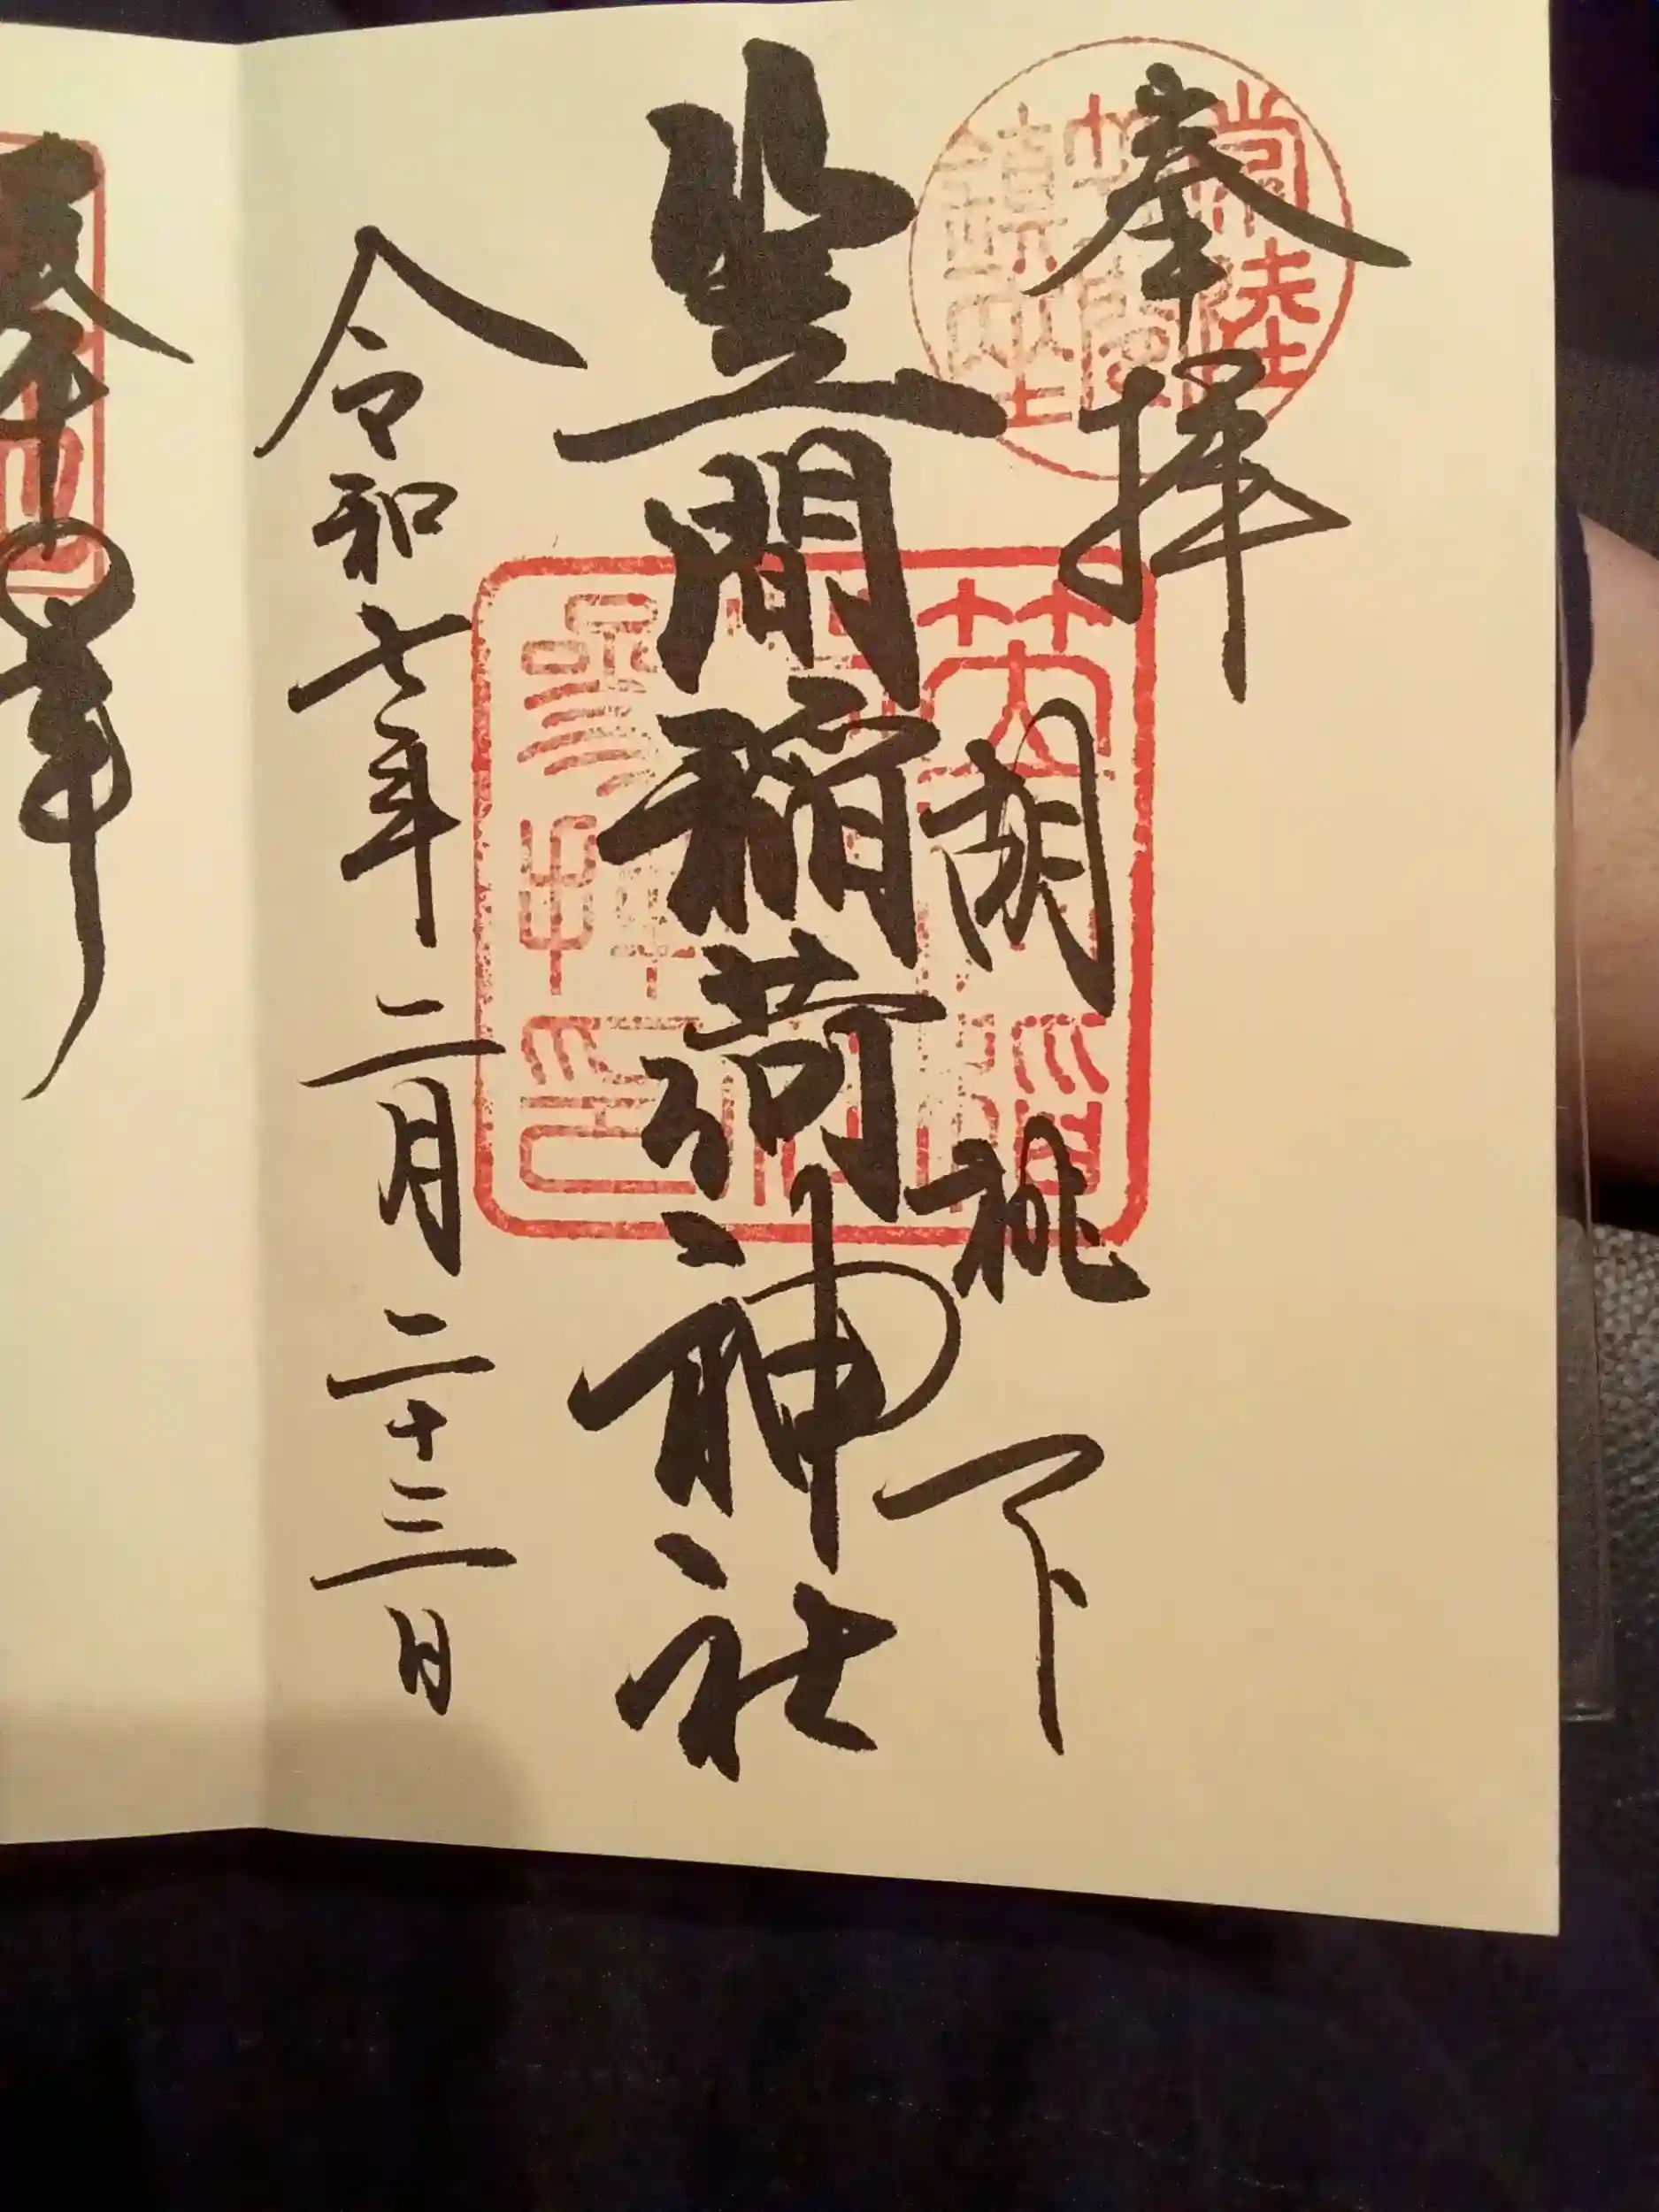 奉拝
常陸
笠間
鎮座
胡桃下
笠間稲荷神社
参拝印
令和七年二月二十三日